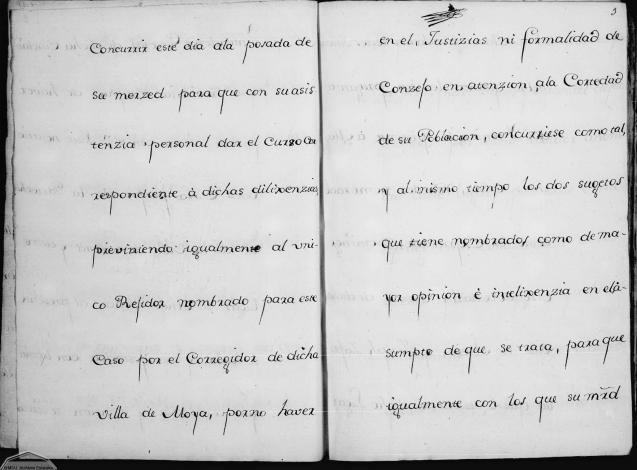 Concurrir este dia ala posada de
su merzed para que con su asis
tenzia personal dar el Curso Co
rrespondiente à dichas dilixenzias
previniendo igualmente al vni-
co Rejidor nombrado para este
Caso por el Corregidor de dicha
Villa de Moya, porno haver
3
en el, Justizias ni formalidad de
Conzejo en atenzion, ala Cortedad
de su Poblacion, concurriese como tal,
y al mismo tiempo los dos sugetos
que tiene nombrados, como de ma-
yor opinion è intelixenzia en el a-
sumpto de que se trata, para que
igualmente con los que su mrd